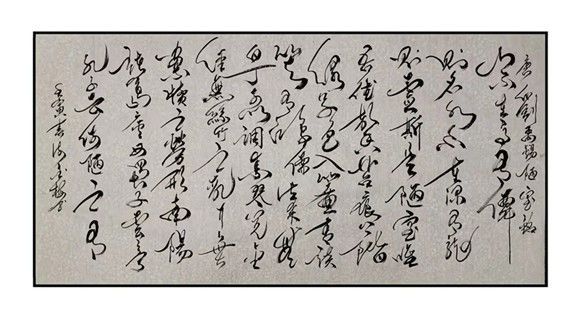 唐劉禹錫陋室銘
山不在高有僊
則名水不在深有龍
則靈斯是陋室惟
吾德馨苔痕上階
綠草色入簾青談
笑有鴻儒往來無
白丁可以調素琴閱金
經無絲竹之亂耳無
案牘之勞形南陽
諸葛廬西蜀子雲亭
孔子云何陋之有
壬寅春